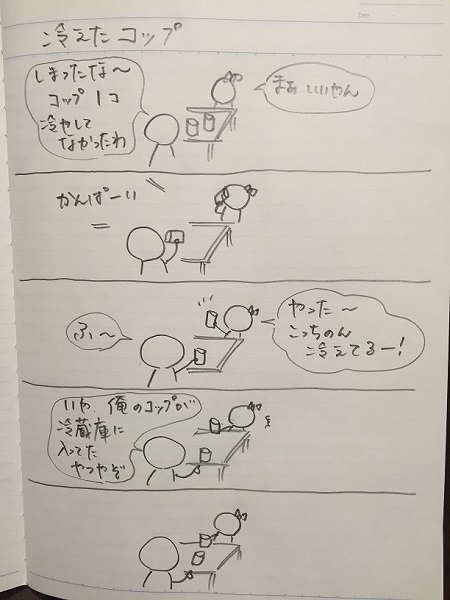 冷えたコップ
しまったな〜
コップ1コ
冷やして
なかったわ
まぁ いいやん
かんぱーい
ふぃ〜
やった〜
こっちのん
冷えてるー!
いや、俺のコップが
冷蔵庫に
入ってた
やつやぞ